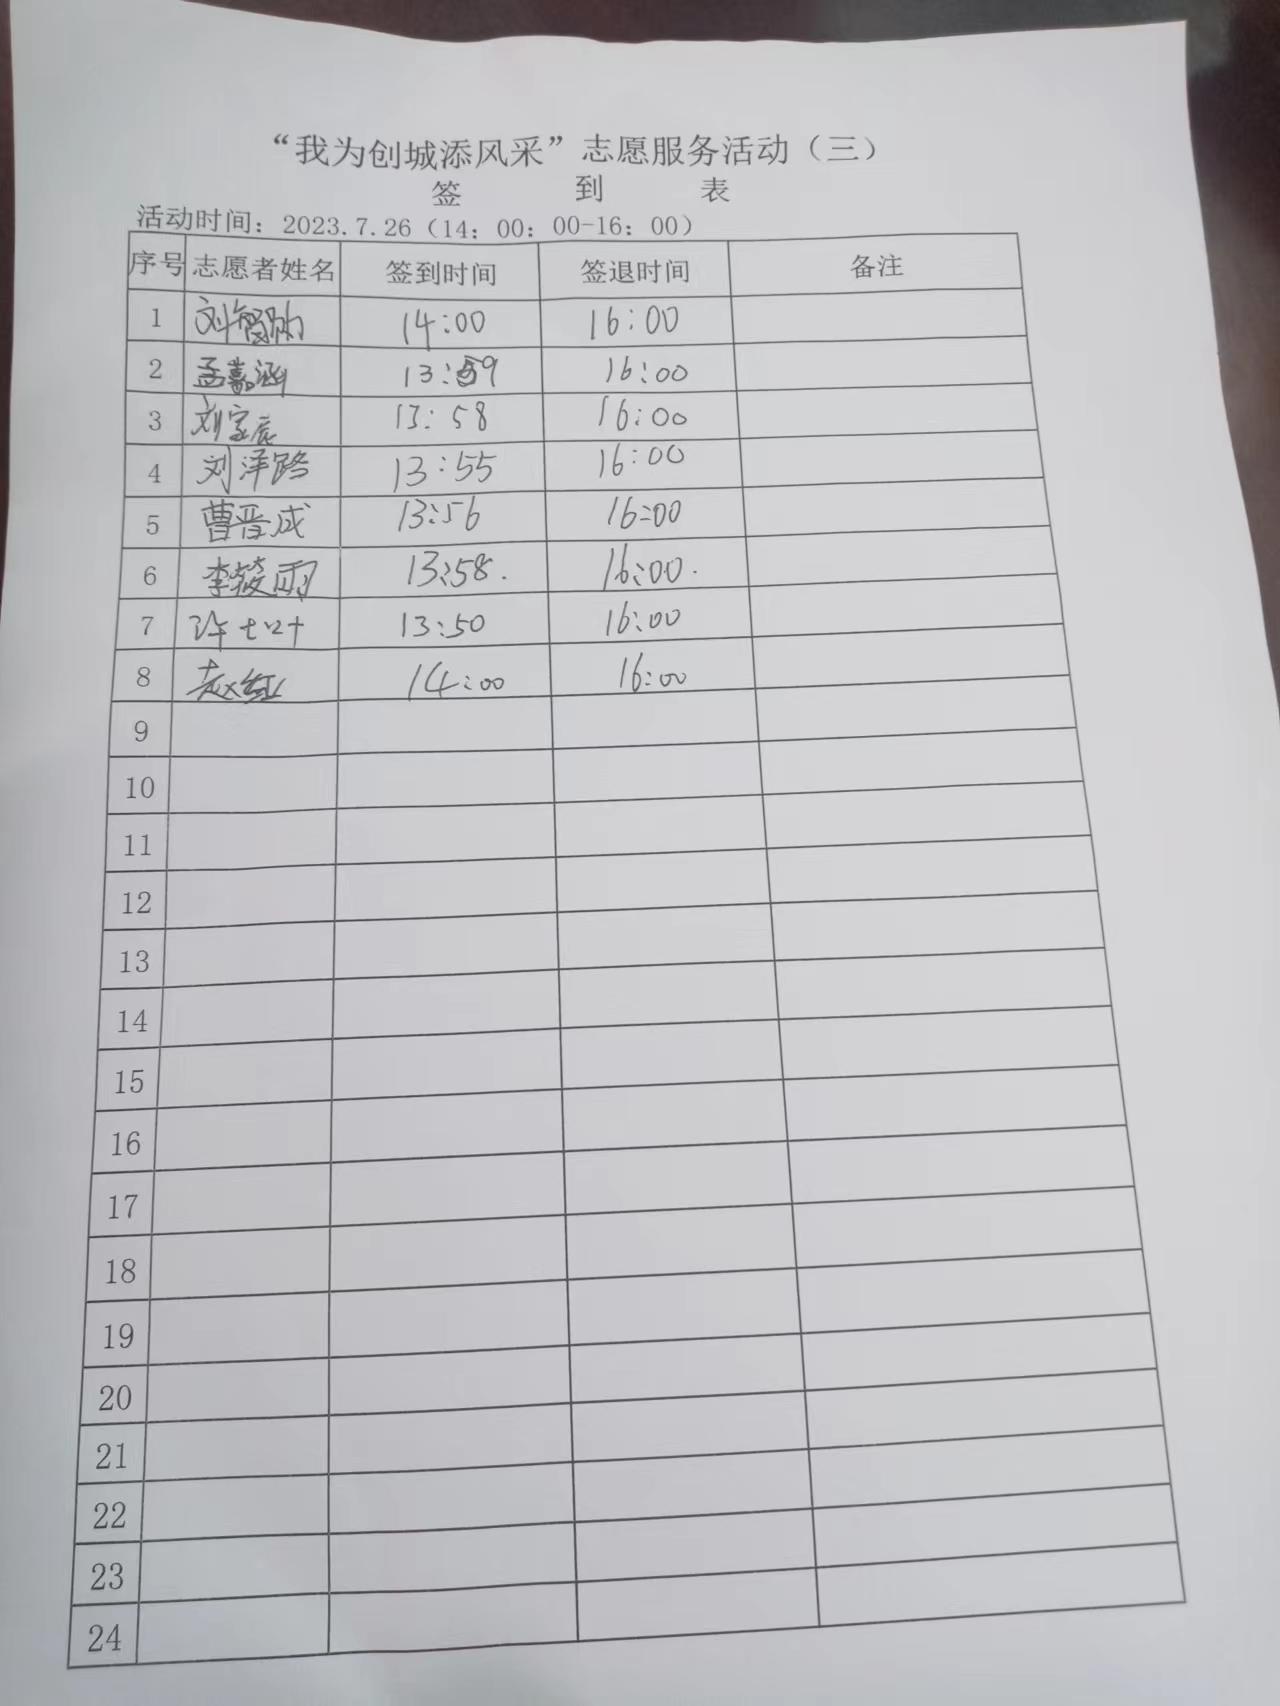 “我为创城添风采”志愿服务活动（三）
签 到 表
活动时间：2023.7.26（14：00：00-16：00）
序号 志愿者姓名 签到时间 签退时间 备注
1 刘 14:00 16:00
2 孟嘉涵 13:59 16:00
3 刘家辰 13:58 16:00
4 刘泽路 13:55 16:00
5 曹晋成 13:56 16:00
6 李筱雨 13:58. 16:00.
7 许 13:50 16:00
8 赵红 14:00 16:00
9
10
11
12
13
14
15
16
17
18
19
20
21
22
23
24